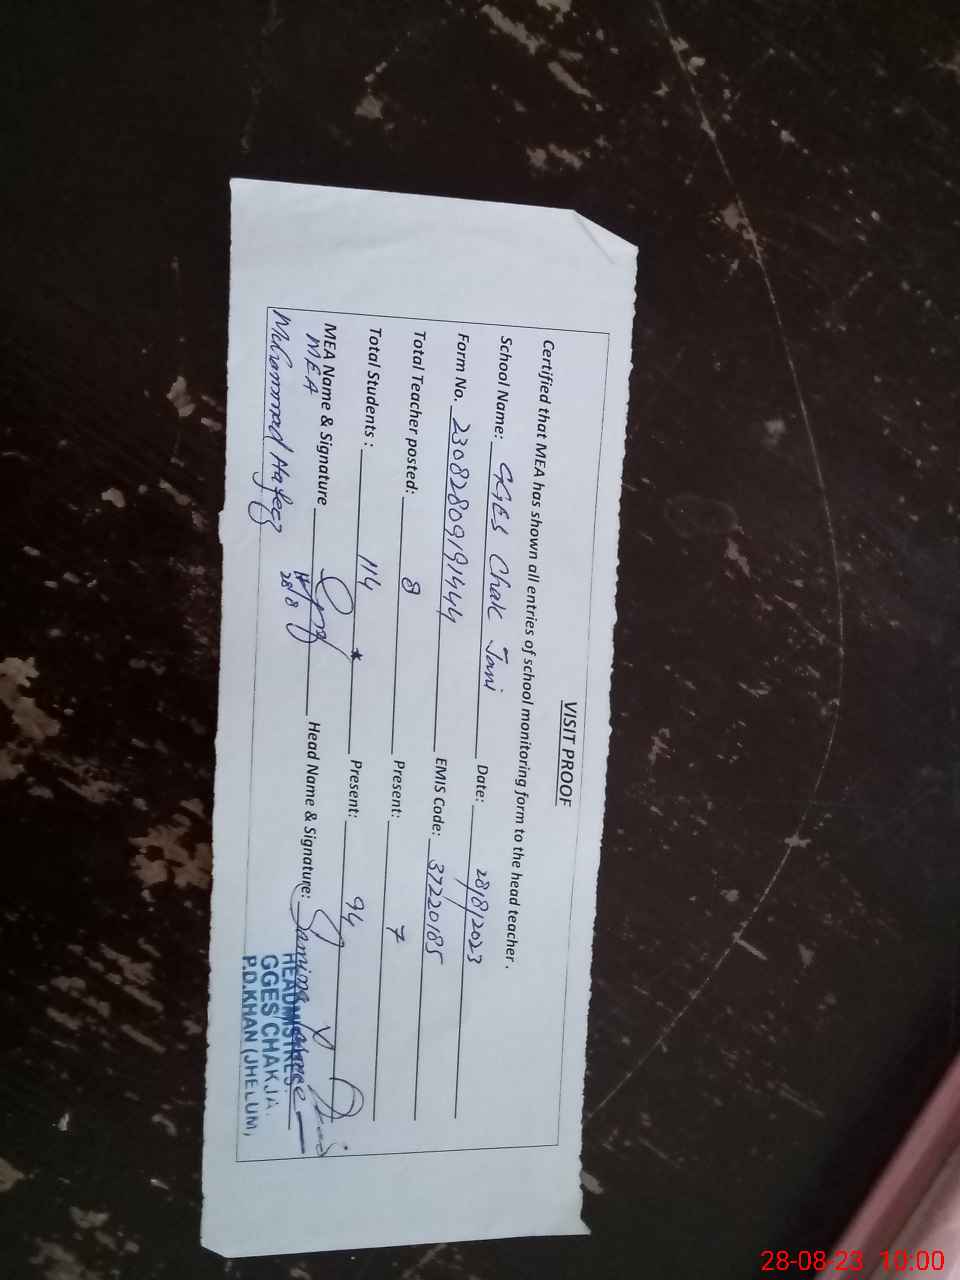 VISIT PROOF
Certified that MEA has shown all entries of school monitoring form to the head teacher .
School Name: GGES Chak Jani Date: 28/8/2023
Form No. 23082809191444 EMIS Code: 37220185
Total Teacher posted: 8 Present: 7
Total Students : 114 * Present: 94
MEA Name & Signature Head Name & Signature: Samina
MEA 28/8
Muhammad Hafeez
HEADMISTRES
GGES CHAK JA
P.D.KHAN (JHELUM)
28-08-23 10:00